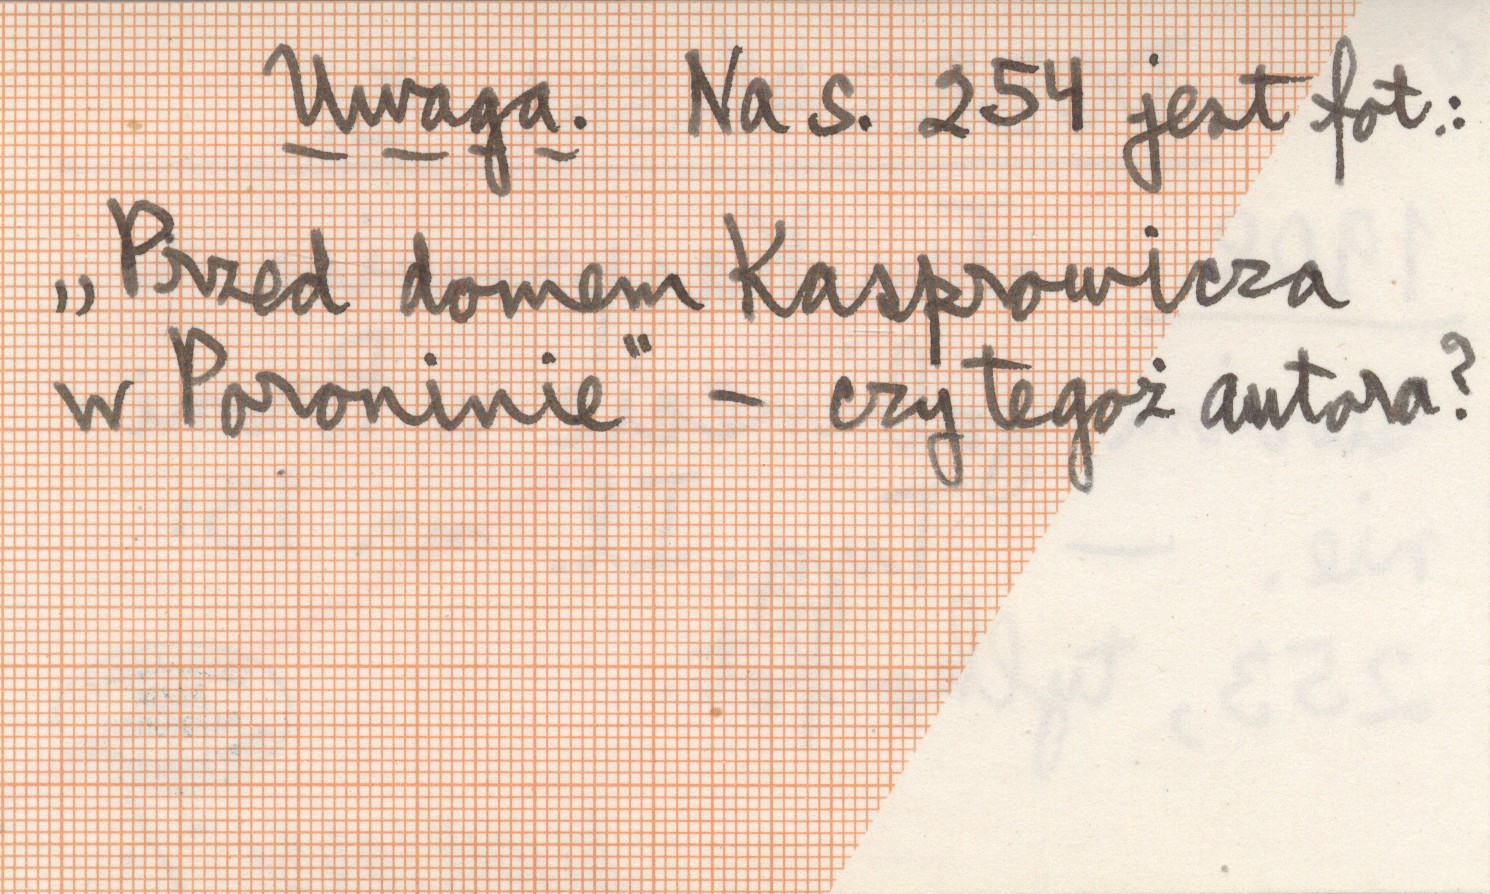 Uwaga. Na s. 254 jest fot.:
„Przed domem Kasprowicza
w Poroninie" – czy tegoż autora?